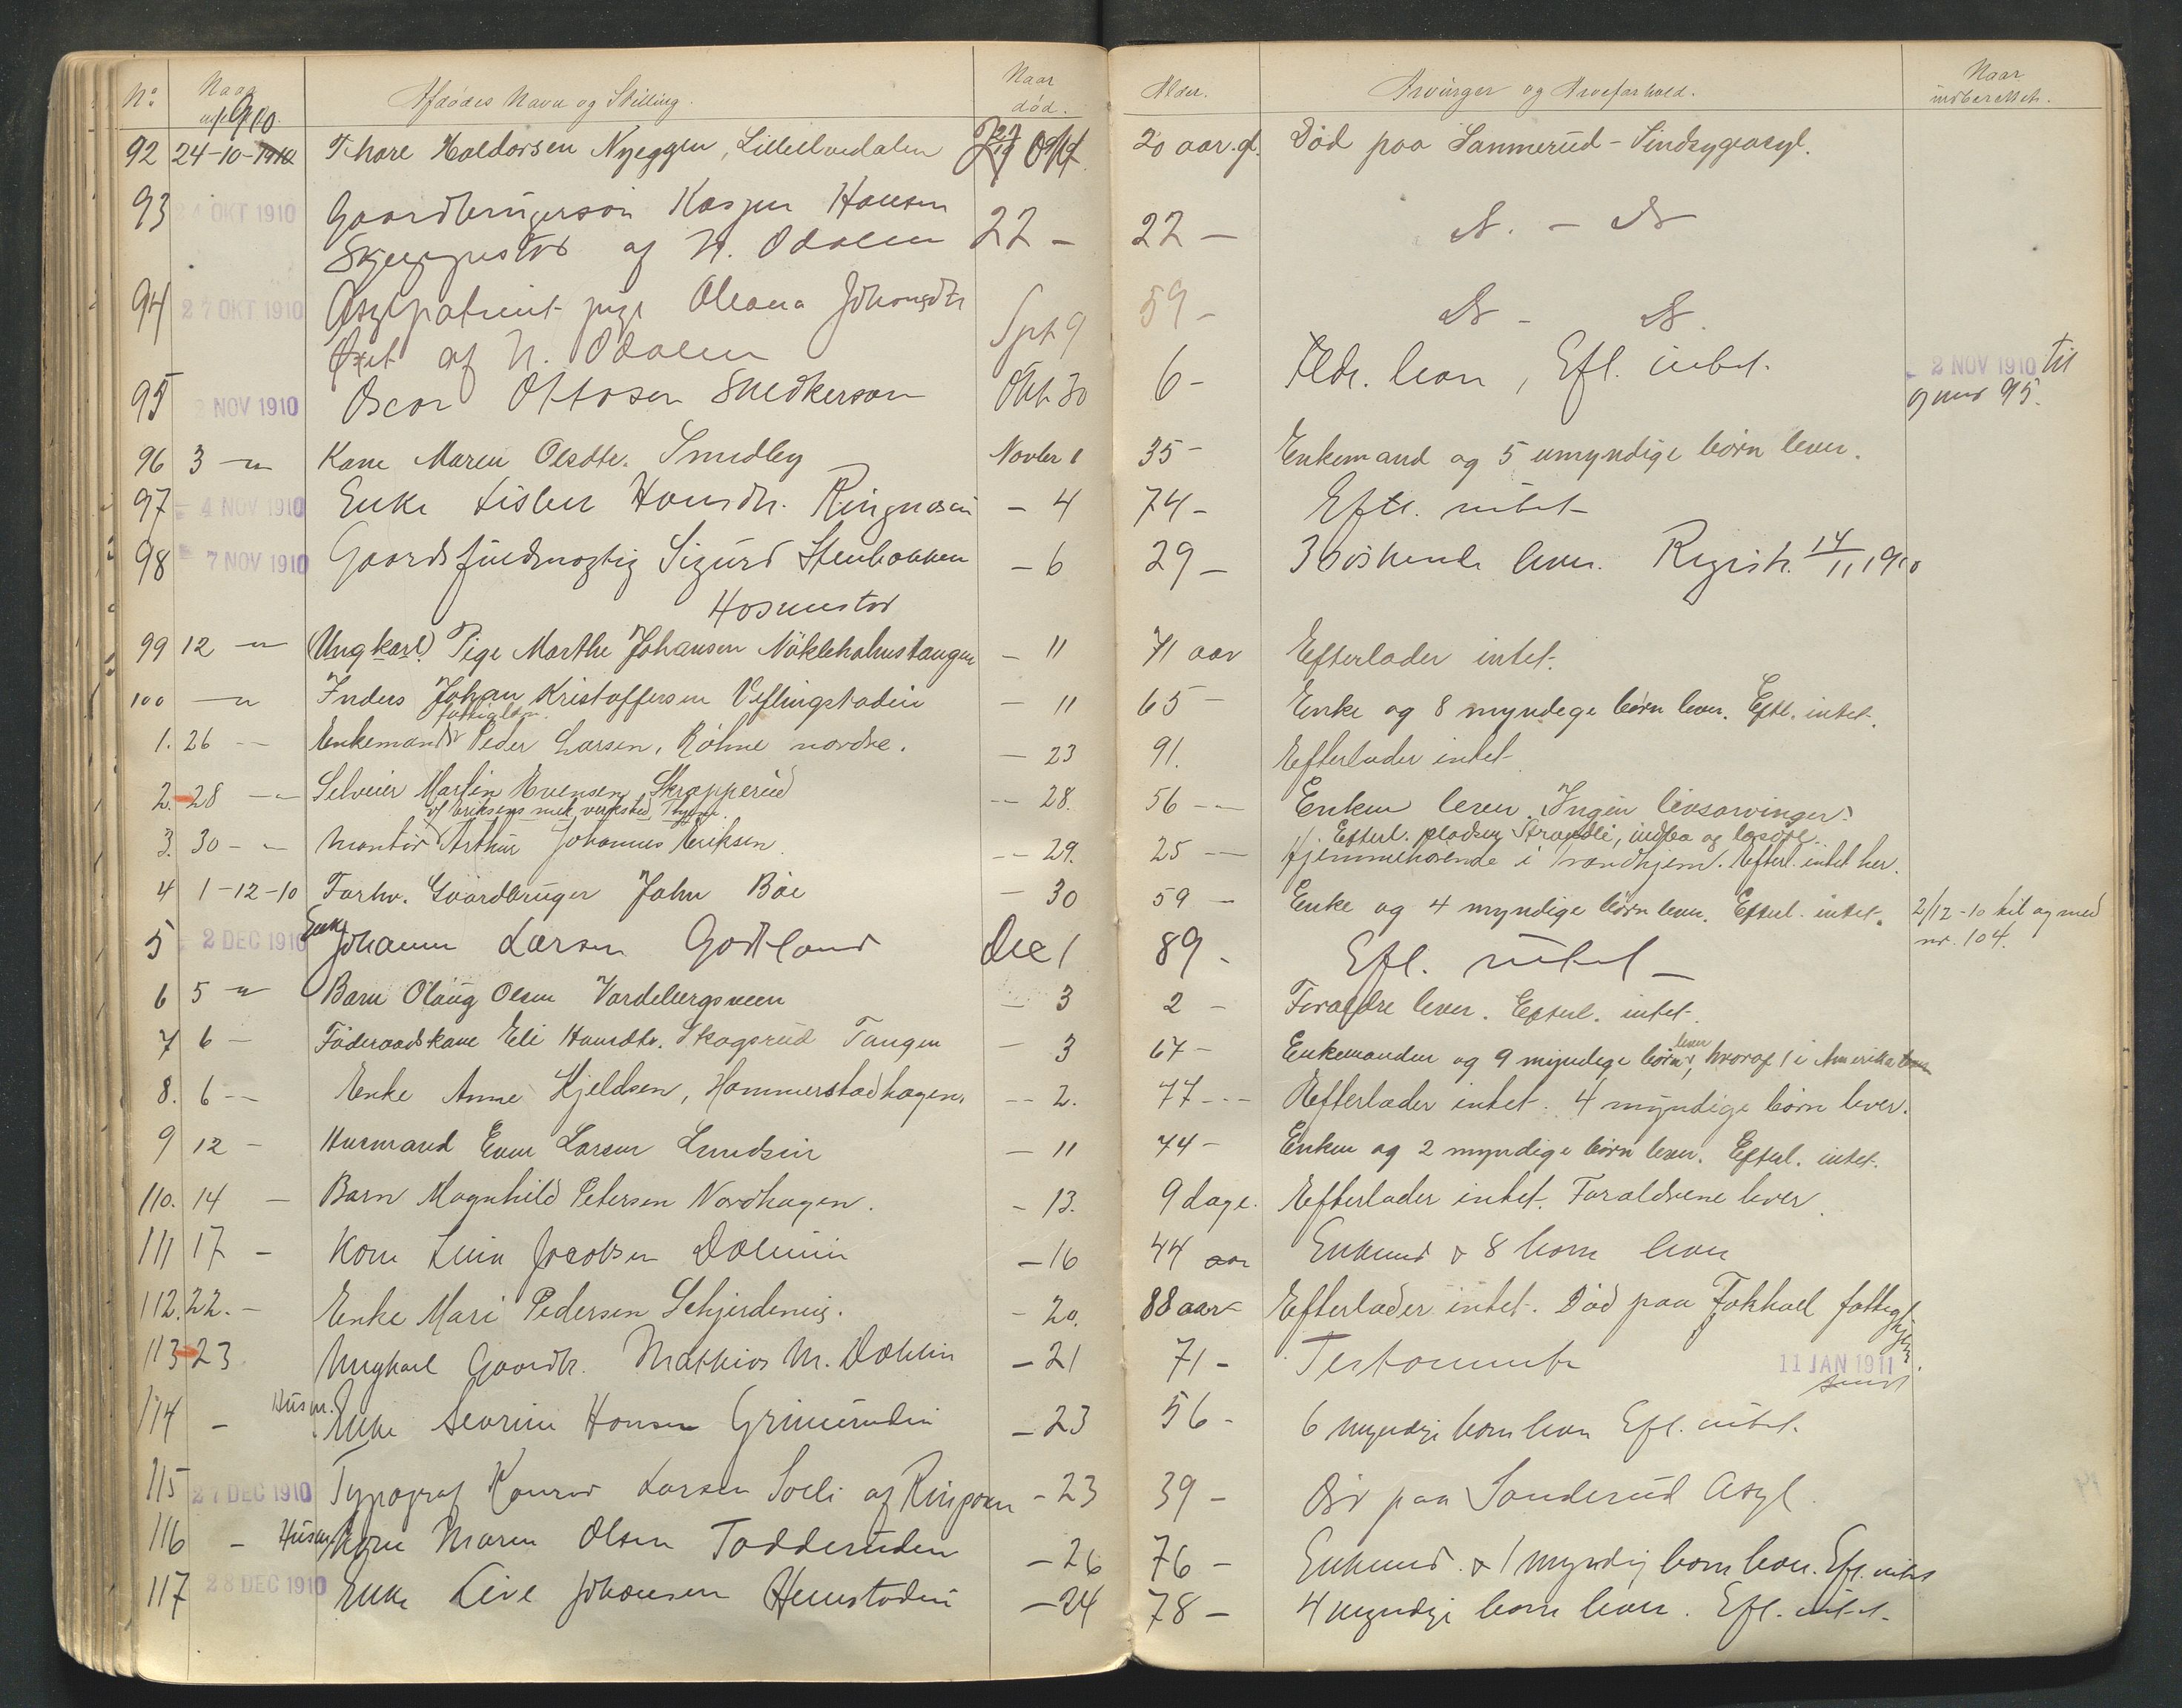 No. Naar 1910. Afdødes Navn og Stilling. Naar død. Alder. Arvinger og Arveforhold. Naar indberettet.
92 24-10-1910 Thore Haldorsen Nyeggen, Lilleelvedalen Okt. 20 aar. gl. Død paa Sannerud-Sindsygeasyl.
93 24 OKT 1910 Gaardbrugersøn Kasper Hansen 22 - 22 - D. - D
af N. Odalen
94 27 OKT 1910 Asylpatient pige Oleana Johansdtr Spt 9 59 - D - D.
af N. Odalen
95 2 NOV 1910 Oscar Ottosen Snedkersøn Okt 30 6 - Fldr. lever, Efl. intet. 2 NOV 1910 til
og med 95.
96 3 - " Kone Maren Olsdtr. Smedby Novbr 1 35 - Enkemand og 5 umyndige børn lever.
97 4 NOV 1910 Enke Lisbet Hansdtr. Ringnæsen - 4 74 - Eftl. intet
98 7 NOV 1910 Gaardsfuldmægtig Sigurd Stenbakken - 6 29 - 3 søskende lever. Registr. 14/11 1910
Hosmestad
99 12 - " (Ungkarl) Pige Marthe Johansen Nökleholmstangen - 11 71 aar Efterlader intet.
100 - " Inders Johan Kristoffersen Veflingstadeie - 11 65 - Enke og 8 myndege børn lever. Eftl. intet.
fattiglem.
1. 26 - - Enkemand Peder Larsen, Røhne nordre. - 23 91. Efterlader intet
2. 28 - - Selveier Martin Evensen Skrapperud -- 28. 56 - - Enken lever. Ingen livsarvinger.
v/ Eriksens mek. verksted, Efterl. pladsen Strandli, indbo og løsøre.
3. 30 - - Montør Arthur Johannes Eriksen -- 29. 25 - - Hjemmehørende i Trondhjem. Efterl. intet her.
4 1-12-10 Forhv. Gaardbruger John Bøe - 30 59 - Enke og 4 myndige børn lever. Efterl. intet. 2/12-10 til og med
nr. 104.
5 2 DEC 1910 Enke Johanne Larsen Godtland Dec 1 89 - Efl. intet -
6 5 - " Barn Olaug Olsen Vardebergsveen - 3 2 - Forældre lever. Efterl. intet.
7 6 - Föderaadskone Eli Hansdtr. Skogsrud Tangen - 3 67 - Enkemanden og 9 myndege børn lever, hvoraf 1 i Amerika
8. 6 - - Enke Anne Kjeldsen, Hammerstadhagen. -- 2. 77 - - Efterlader intet. 4 myndige børn lever.
9 12 - Husmand Even Larsen Lundseie - 11 74 - Enken og 2 myndige børn lever. Efterl. intet.
110. 14 - Barn Magnhild Petersen Nordhagen. - 13. 9 dage. Efterlader intet. Forældrene lever.
111 17 - Kone Lina Jacobsen Dæleneie - 16 44 aar Enkemd & 8 børn lever
112. 22. - Enke Mari Pedersen Schjerdeneie. - 20. 88 aar - Efterlader intet. Død paa Fokhoel fattighjem.
113 23 Ungkarl Gaardbr. Mathias M. Dæhlin - 21 71 - Testamente 11 JAN 1911
sendt
114 - Husm. Enke Severine Hansen Grimerudeie - 23 56 - 6 myndige børn lever Efl. intet.
115 27 DEC 1910 Typograf Konrad Larsen Soeli af Ringsaker - 23 39 - Død paa Sanderud Asyl.
116 - Husm. Kone Maren Olsen Tødderuden - 26 76 - Enkemd. & 1 myndig barn lever. Efl. intet
117 28 DEC 1910 Enke Live Johansen Hemstadeie - 24 78 - 4 myndige børn lever. Efl. intet.